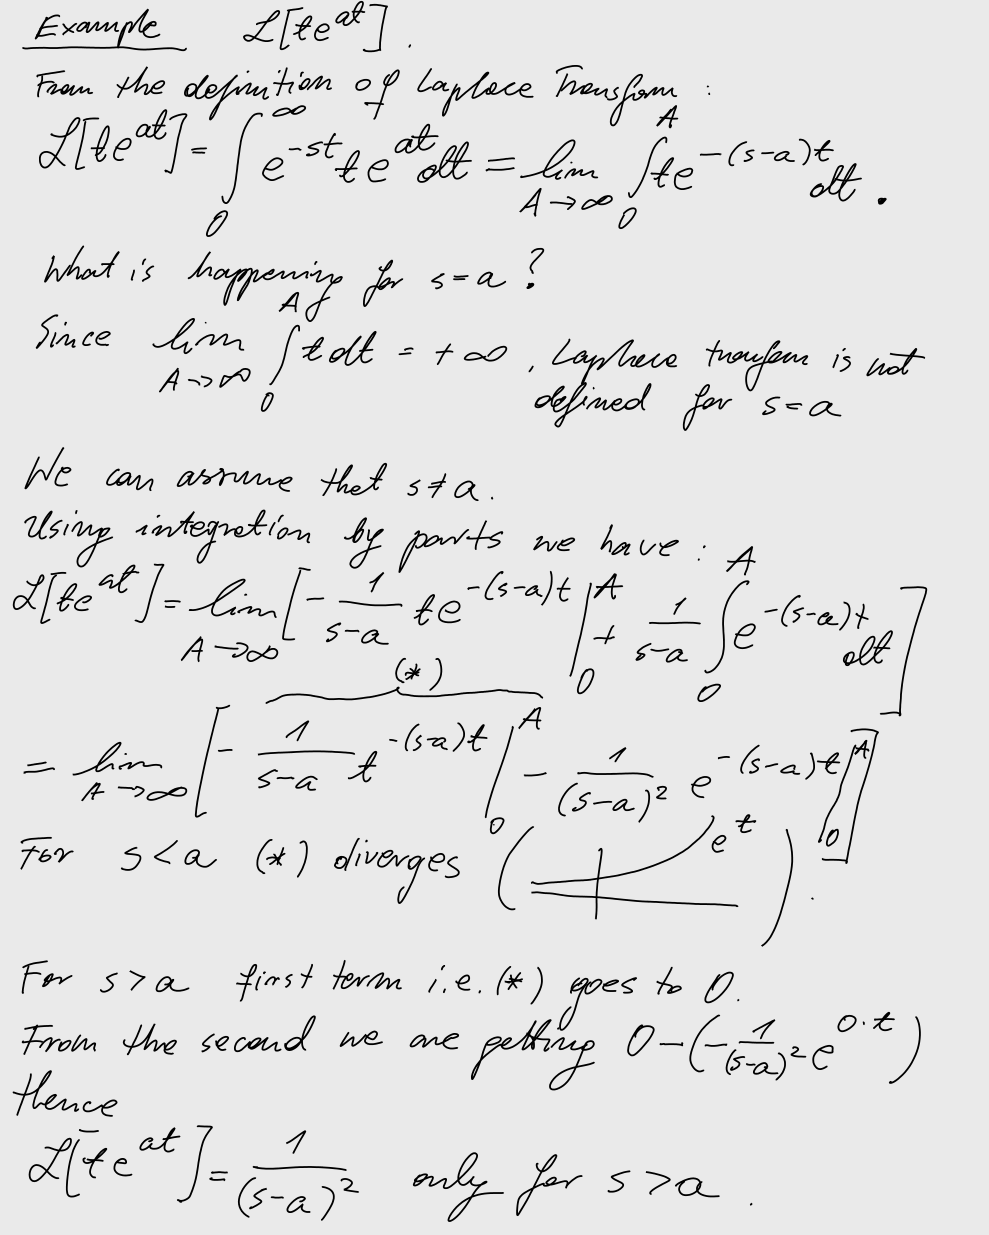 Example ℒ[te^{at}].
From the definition of Laplace Transform :
ℒ[te^{at}] = ∫_0^∞ e^{-st} t e^{at} dt = lim_{A→∞} ∫_0^A te^{-(s-a)t} dt .
What is happening for s=a ?
Since lim_{A→∞} ∫_0^A t dt = +∞ , Laplace transform is not
defined for s=a
We can assume that s≠a.
Using integration by parts we have :
ℒ[te^{at}] = lim_{A→∞} [ - \frac{1}{s-a} te^{-(s-a)t} |_0^A + \frac{1}{s-a} ∫_0^A e^{-(s-a)t} dt ]
(*)
= lim_{A→∞} [ - \frac{1}{s-a} t^{-(s-a)t} |_0^A - \frac{1}{(s-a)^2} e^{-(s-a)t} |_0^A ]
For s<a (*) diverges ( e^t ) .
For s>a first term i.e. (*) goes to 0.
From the second we are getting 0-(-\frac{1}{(s-a)^2} e^{0·t})
Hence
ℒ[te^{at}] = \frac{1}{(s-a)^2} only for s>a .